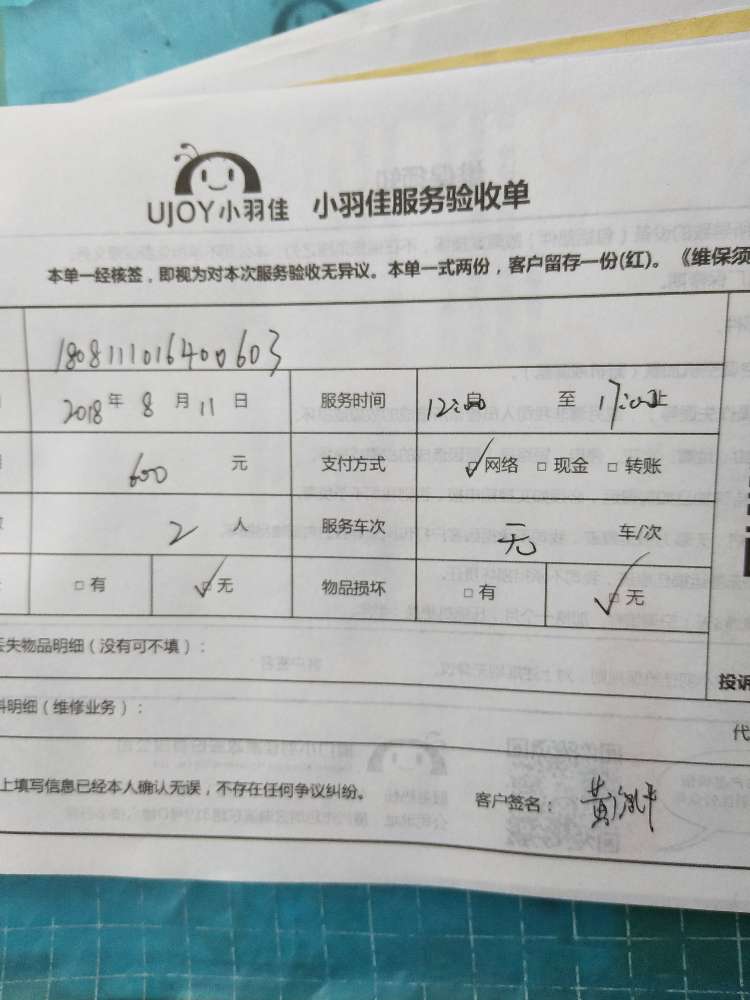 UJOY小羽佳 小羽佳服务验收单
本单一经核签，即视为对本次服务验收无异议。本单一式两份，客户留存一份(红)。《维保须
1808111016400603
2018年8月11日 服务时间 12:00自 至 17:00止
600 元 支付方式 ☑网络 □现金 □转账
2 人 服务车次 无 车/次
□有 ☑无 物品损坏 □有 ☑无
丢失物品明细（没有可不填）：
投诉
料明细（维修业务）：
代
上填写信息已经本人确认无误，不存在任何争议纠纷。 客户签名：黄